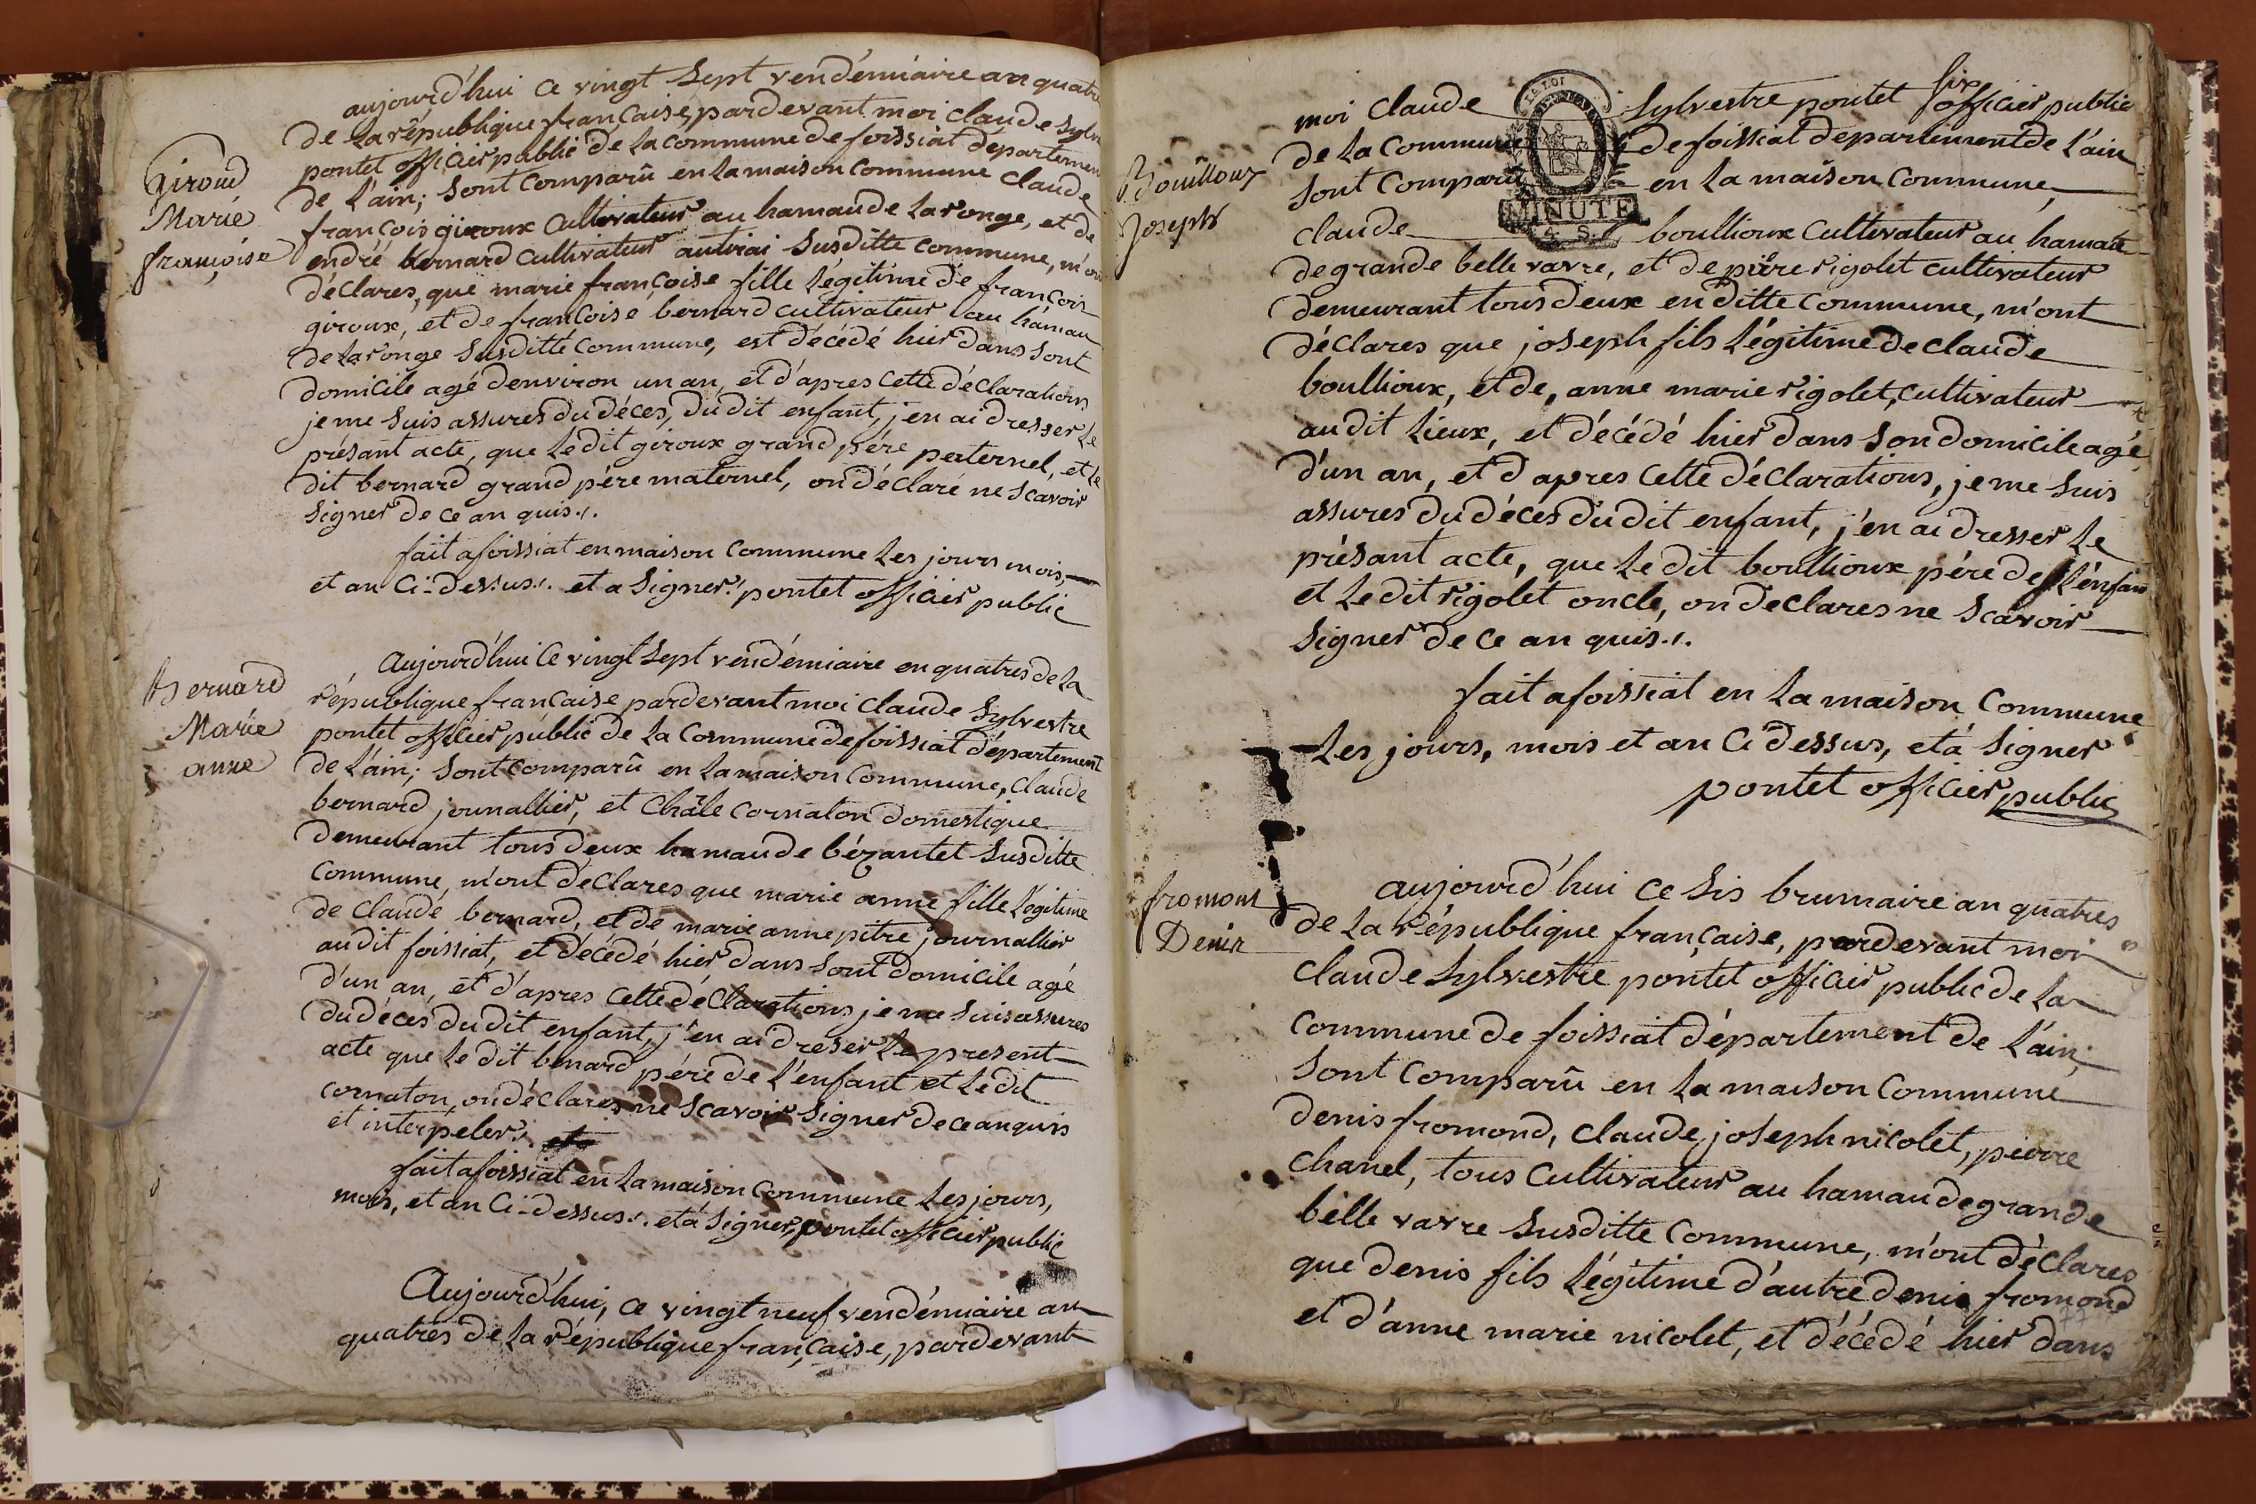 Giroud
Marie
françoise
aujourd'hui ce vingt sept vendémiaire an quatre
de la république française, pardevant moi claude sylv
pontet officier public de la commune de foissiat départemen
de l'ain; sont comparû en la maison commune claude
françois giroux cultivateur au hamaude laronge, et de
endré bernard cultivateur autirai susditte commune, m'on
déclares, que marie françoise fille légitime de françois
giroux, et de françoise bernard cultivateur au hámau
de laronge susditte commune, est décédé hier dans sont
domicile agé denviron un an, et d'apres cette déclarations
je me suis assures du déces, du dit enfant, j'en ai dresser le
présant acte, que le dit giroux grand pére paternel, et le
dit bernard grand pére maternel, on déclaré ne scavoir
signer de ce an quis./.
fait a foissiat en maison commune les jours mois,
et an ci-dessus./. et a signer! pontet officier public
Bernard
Marie
anne
Aujourd'hui ce vingt sept vendémiaire an quatres de la
république française pardevant moi claude sylvestre
pontet officier public de la commune de foissiat département
de l'ain; sont comparû en la maison commune, claude
bernard journallier, et châle cornaton domestique
demeurant tous deux hamaude bézantet susditte
commune, m'ont déclares que marie anne fille légitime
de claude bernard, et de marie anne pitre journallier
audit foissiat, et décédé hier dans sont domicile agé
d'un an, et d'apres cette déclarations je me suis assures
du déces du dit enfant, j'en ai dreser le present
acte que le dit benard pére de l'enfant et le dit
cornaton, on déclares ne scavoir signer de ce anquis
et interpeler./.
fait a foissiat en la maison commune les jours,
mois, et an ci-dessus./. et a signer, pontet officier public
Aujourd'hui, ce vingt neuf vendémiaire an
quatres de la république française, pardevant
six
Bouilloux
Joseph
moi claude sylvestre pontet officier public
de la commune de foissiat departement de l'ain
sont comparû en la maison commune,
MINUTE
4. S.
claude boullioux cultivateur au hamau
de grande belle vavre, et de piérre rigolet cultivateur
demeurant tous deux en ditte commune, m'ont
déclares que joseph fils légitime de claude
boullioux, et de, anne marie rigolet, cultivateur
audit lieux, et décédé hier dans son domicile agé
d'un an, et d'apres cette déclarations, je me suis
assures du déces du dit enfant, j'en ai dresser le
présant acte, que le dit boullioux pére de l'enfan
et le dit rigolet oncle, on declares ne scavoir
signer de ce an quis./.
fait a foissiat en la maison commune
les jours, mois et an ci dessus, et a signer
pontet officier public
fromont
Denis
aujourd'hui ce sis brumaire an quatres
de la république française, pardevant moi
claude sylvestre pontet officier public de la
commune de foissiat département de l'ain;
sont comparû en la maison commune
denis fromond, claude joseph nicolet, pierre
chanel, tous cultivateur au hamau de grande
bélle vavre susditte commune, m'ont déclares
que denis fils légitime d'autre denis fromond
et d'anne marie nicolet, et décédé hier dans